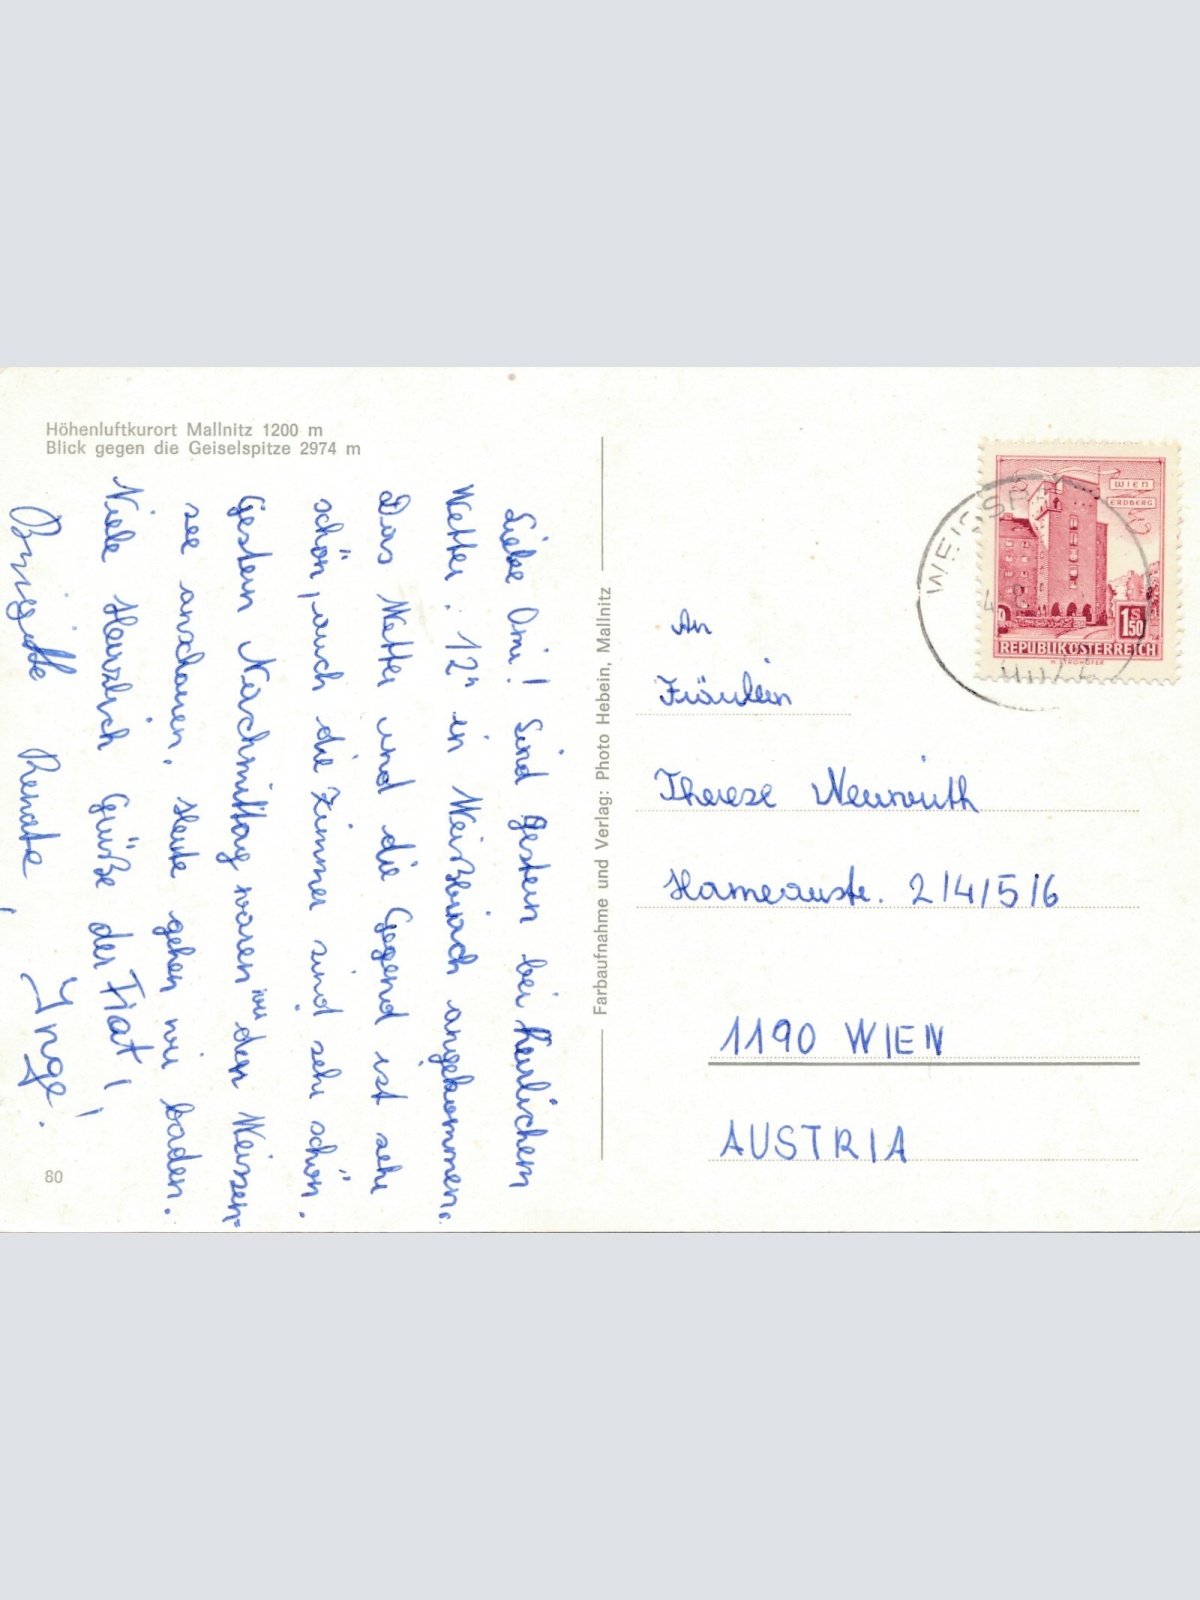 Höhenluftkurort Mallnitz 1200 m
Blick gegen die Geiselspitze 2974 m
Liebe Omi! Sind gestern bei herrlichem
Wetter. 12ʰ in Weißbriach angekommen.
Das Wetter und die Gegend ist sehr
schön, auch die Zimmer sind sehr schön.
Gestern Nachmittag waren wir den Weissen=
see anschauen. Heute gehen wir baden.
Viele Herzlich Grüße der Fiat!
Brigitte Renate, Inge!
80
Farbaufnahme und Verlag: Photo Hebein, Mallnitz
WIEN
ERDBERG
1 S 50
REPUBLIK ÖSTERREICH
An
Fräulein
Therese Neurauth
Hameaustr. 2/4/5/6
1190 WIEN
AUSTRIA